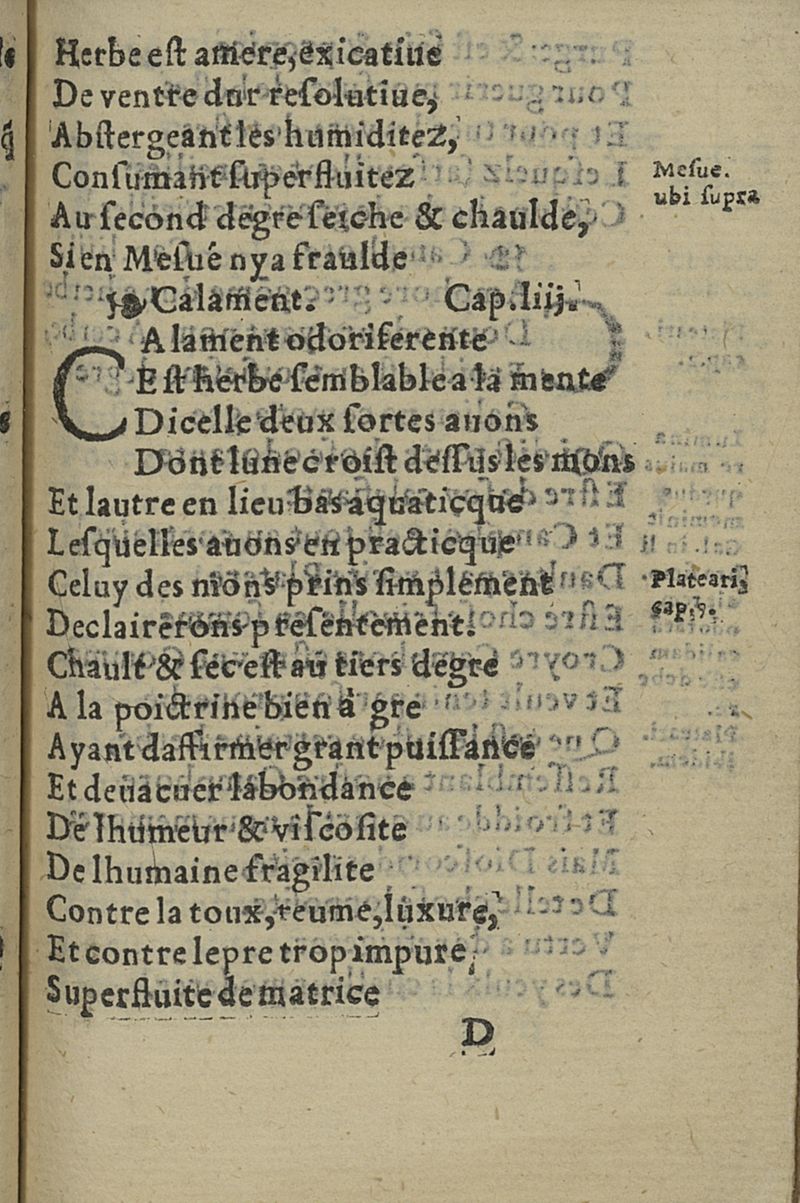 Herbe est amere, exicatiue
De ventre dur resolutiue,
Abstergeant les humiditez,
Consumant superfluitez
Mesue.
ubi supra
Au second degre seiche & chaulde,
Si en Mesué n y a fraulde
Calament. Cap. iiij.
CAlament odoriferente
Est herbe semblable a la mente
Dicelle deux sortes auons
Dont lune croist dessus les mons
Et lautre en lieu bas aquaticque
Lesquelles auons en practicque
Celuy des mons prins simplement
Platearij
cap. 7.
Declairerons presentement.
Chault & sec est au tiers degré
A la poictrine bien a gre
Ayant daffirmer grant puissance
Et deuacuer labondance
De lhumeur & viscosite
De lhumaine fragilite
Contre la toux, reume, luxure,
Et contre lepre trop impure,
Superfluite de matrice
D